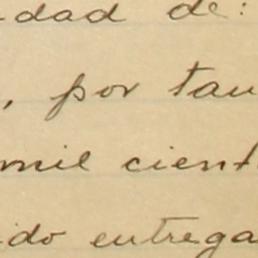 dad de:
, por tau
mil cient
ido entrega